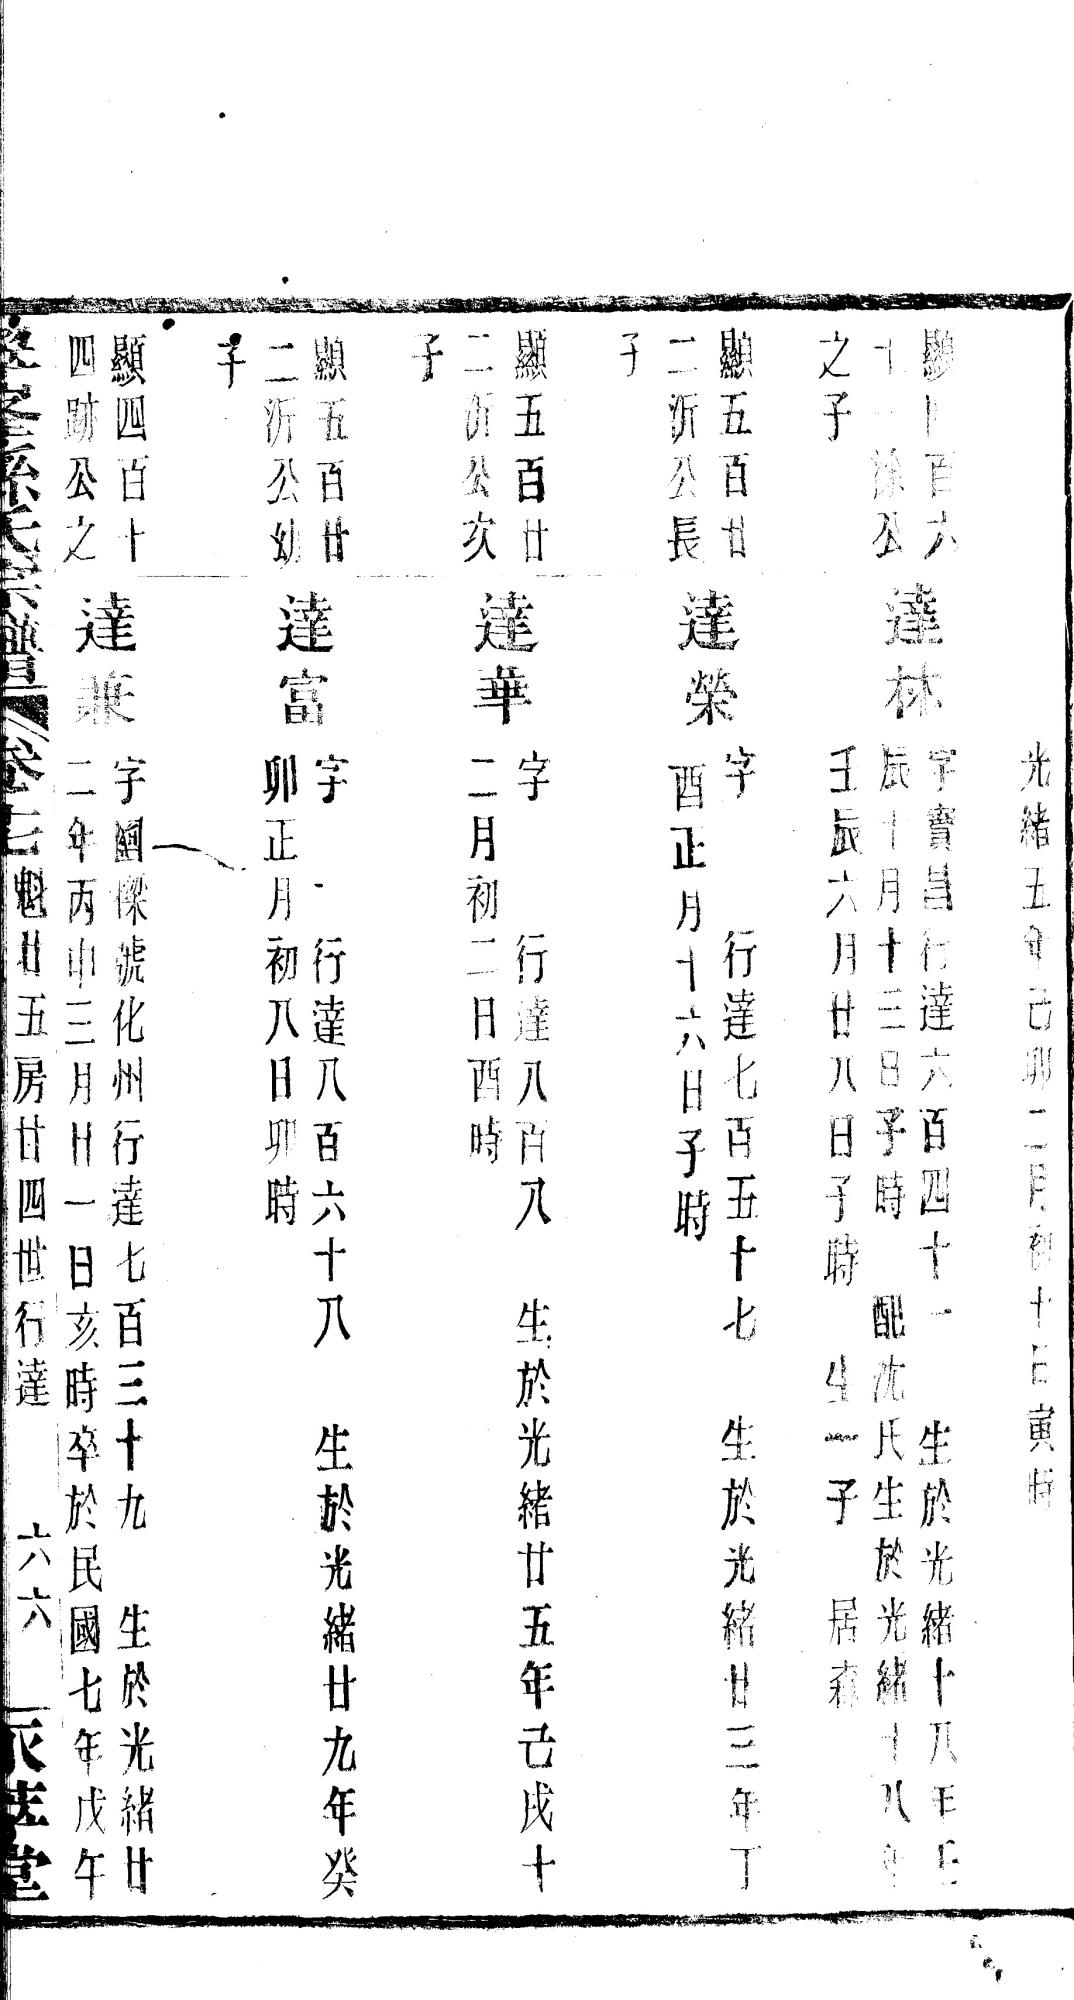 光緒五年己卯二月初十日寅時
顯四百六
十一涂公
之子
達林
字寶昌行達六百四十一　生於光緒十八年壬
辰十月十三日子時　配沈氏生於光緒十八年
壬辰六月廿八日子時　生一子　居森
顯五百廿
二沂公長
子
達榮
字　行達七百五十七　生於光緒廿三年丁
酉正月十六日子時
顯五百廿
二沂公次
子
達華
字　行達八百八　生於光緒廿五年己戌十
二月初二日酉時
顯五百廿
二沂公幼
子
達富
字　行達八百六十八　生於光緒廿九年癸
卯正月初八日卯時
顯四百十
四跡公之
達兼
字國樑號化州行達七百三十九　生於光緒廿
二年丙申三月廿一日亥時卒於民國七年戊午
孫氏宗譜　卷七　魁廿五房廿四世行達　六六　堂